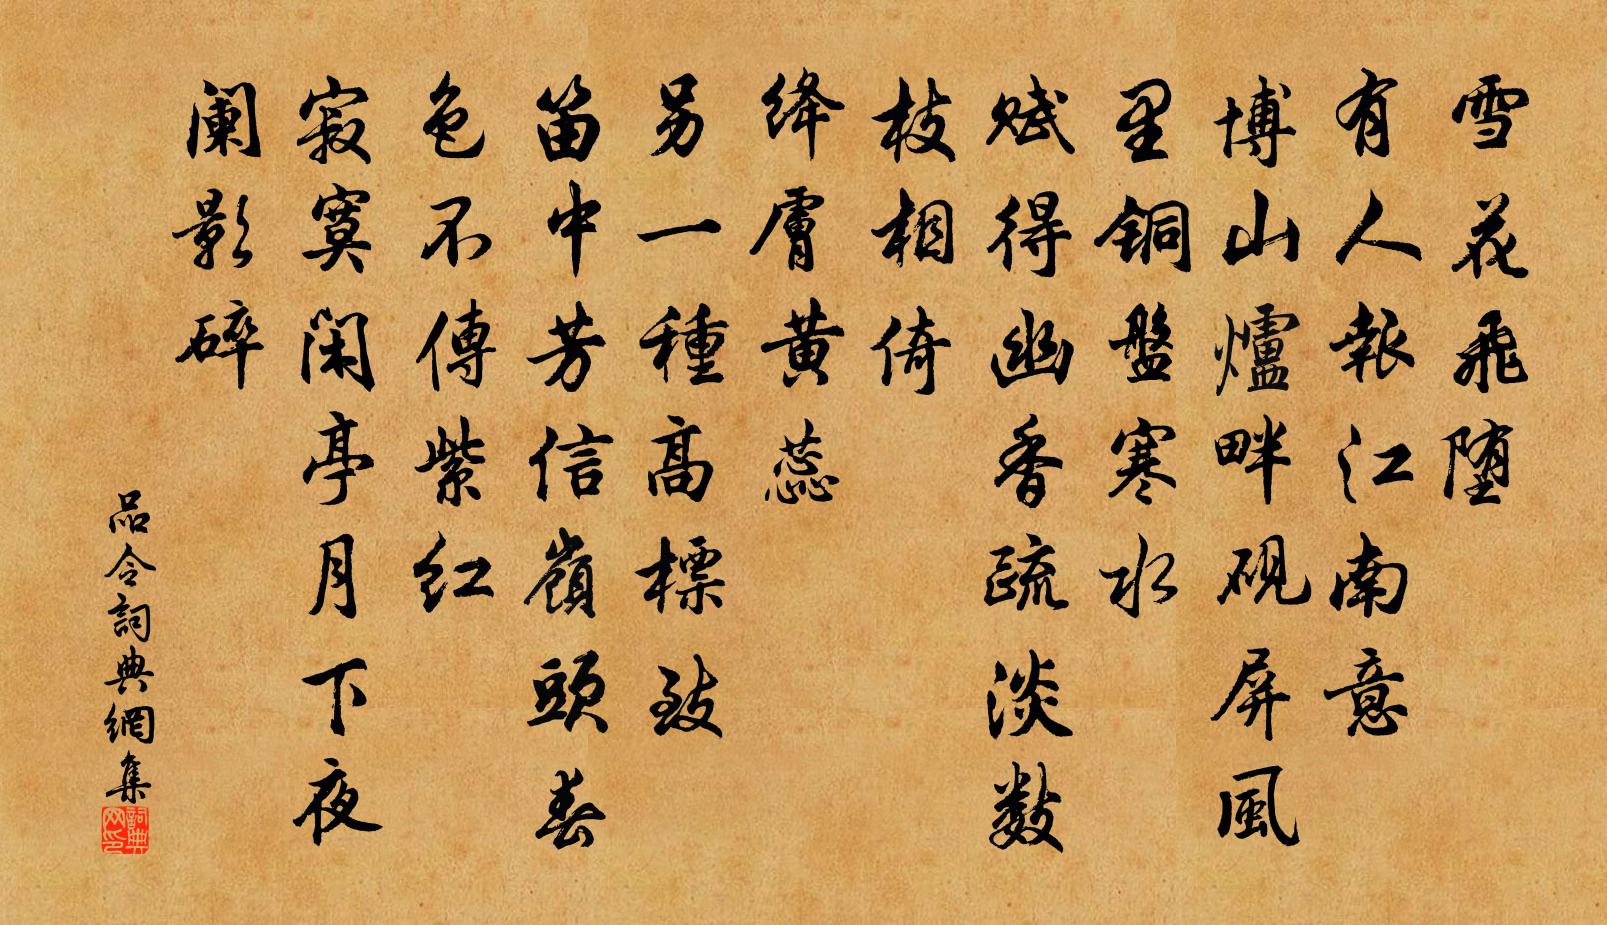 雪花飛堕
有人報江南意
博山爐畔硯屏風
里銅盤寒水
賦得幽香疏淡數
枝相倚
絳膚黄蕊
另一種高標致
笛中芳信嶺頭春
色不傳紫紅
寂寞閑亭月下夜
闌影碎
品令詞典網集
詞典网印